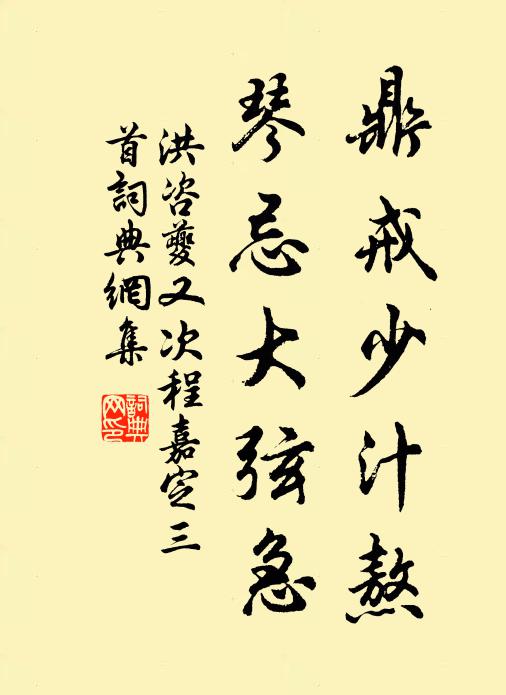 鼎戒少汁熬
琴忌大弦急
洪咨夔又次程嘉定三
首詞典網集
詞典網印